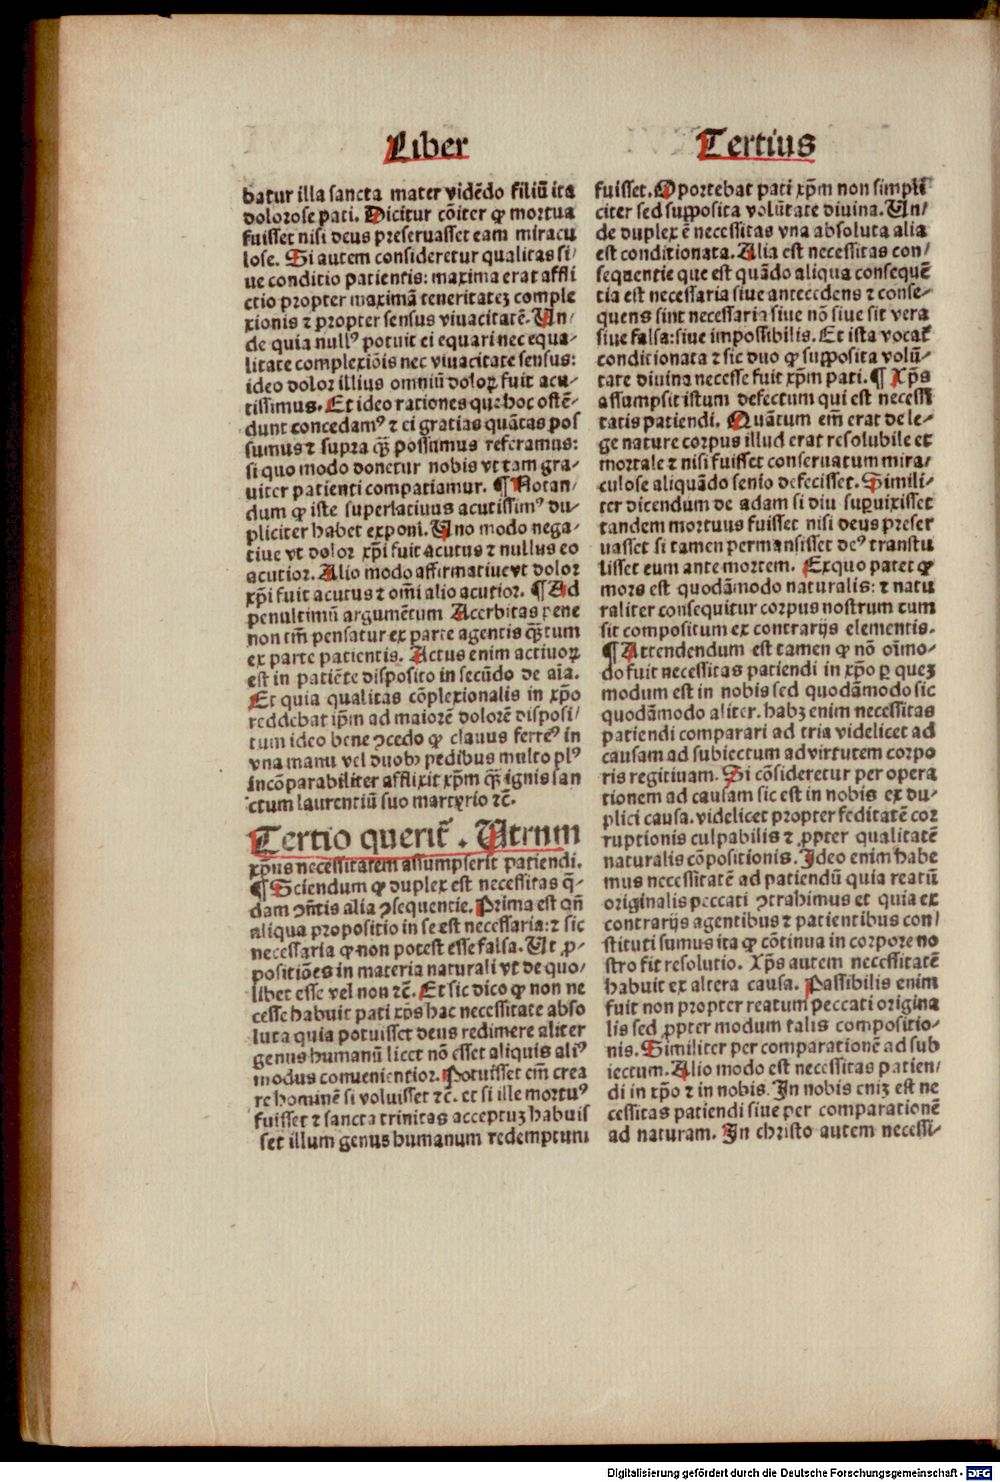 Liber Tertius
batur illa sancta mater vidēdo filiū ita
dolorose pati. Dicitur cōiter ꝙ mortua
fuisset nisi deus preseruasset eam miracu
lose. Si autem consideretur qualitas si/
ue conditio patientis: maxima erat affli
ctio propter maximā teneritatez comple
xionis ⁊ propter sensus viuacitatē. Un/
de quia nullꝰ potuit ei equari nec equa-
litate complexiōis nec viuacitate sensus:
ideo dolor illius omniū doloꝝ fuit acu-
tissimus. Et ideo rationes que hoc ostē-
dunt concedamꝰ ⁊ ei gratias quātas pos
sumus ⁊ supra qꝫ̄ possumus referamus:
si quo modo donetur nobis vt tam gra-
uiter patienti compatiamur. ¶ Notan/
dum ꝙ iste superlatiuus acutissimꝰ du-
pliciter habet exponi. Uno modo nega-
tiue vt dolor xp̄i fuit acutus ⁊ nullus eo
acutior. Alio modo affirmatiue vt dolor
xp̄i fuit acutus ⁊ om̄i alio acutior. ¶ Ad
penultimū argumētum Acerbitas pene
non tm̄ pensatur ex parte agentis qꝫ̄tum
ex parte patientis. Actus enim actiuoꝝ
est in patiēte disposito in secūdo de aīa.
Et quia qualitas cōplexionalis in xp̄o
reddebat ip̄m ad maiorē dolorē disposi/
tum ideo bene ꝯcedo ꝙ clauus ferreꝰ in
vna manu vel duobꝫ pedibus multo plꝰ
incōparabiliter afflixit xp̄m qꝫ̄ ignis san
ctum laurentiū suo martyrio ⁊c̄.
Tertio querit̄. Utrum
xp̄us necessitatem assumpserit patiendi.
¶ Sciendum ꝙ duplex est necessitas q̄-
dam ꝯn̄tis alia ꝯsequentie. Prima est qn̄
aliqua propositio in se est necessaria: ⁊ sic
necessaria ꝙ non potest esse falsa. Ut ꝓ-
positiōes in materia naturali vt de quo/
libet esse vel non ⁊c̄. Et sic dico ꝙ non ne
cesse habuit pati xp̄s hac necessitate abso
luta quia potuisset deus redimere aliter
genus humanū licet nō esset aliquis aliꝰ
modus conuenientior. Potuisset em̄ crea
re hominē si voluisset ⁊c̄. et si ille mortuꝰ
fuisset ⁊ sancta trinitas acceptuz habuis
set illum genus humanum redemptum
fuisset. Oportebat pati xp̄m non simpli
citer sed supposita volūtate diuina. Un/
de duplex ē necessitas vna absoluta alia
est conditionata. Alia est necessitas con/
sequentie que est quādo aliqua consequē
tia est necessaria siue antecedens ⁊ conse-
quens sint necessaria siue nō siue sit vera
siue falsa: siue impossibilis. Et ista vocat̄
conditionata ⁊ sic duo ꝙ supposita volū-
tate diuina necesse fuit xp̄m pati. ¶ Xp̄s
assumpsit istum defectum qui est necessi
tatis patiendi. Quātum em̄ erat de le-
ge nature corpus illud erat resolubile et
mortale ⁊ nisi fuisset conseruatum mira/
culose aliquādo senio defecisset. Simili-
ter dicendum de adam si diu suꝑuixisset
tandem mortuus fuisset nisi deus preser
uasset si tamen permansisset deꝰ transtu
lisset eum ante mortem. Ex quo patet ꝙ
mors est quodāmodo naturalis: ⁊ natu
raliter consequitur corpus nostrum cum
sit compositum ex contrarijs elementis.
¶ Attendendum est tamen ꝙ nō oīmo-
do fuit necessitas patiendi in xp̄o ꝑ quez
modum est in nobis sed quodāmodo sic
quodāmodo aliter. habꝫ enim necessitas
patiendi comparari ad tria videlicet ad
causam ad subiectum ad virtutem corpo
ris regitiuam. Si cōsideretur per opera
tionem ad causam sic est in nobis ex du-
plici causa. videlicet propter feditatē cor
ruptionis culpabilis ⁊ ꝓpter qualitatē
naturalis cōpositionis. Ideo enim habe
mus necessitatē ad patiendū quia reatū
originalis peccati ꝯtrahimus et quia ex
contrarijs agentibus ⁊ patientibus con/
stituti sumus ita ꝙ cōtinua in corpore no
stro fit resolutio. Xp̄s autem necessitatē
habuit ex altera causa. Passibilis enim
fuit non propter reatum peccati origina
lis sed ꝓpter modum talis compositio-
nis. Similiter per comparationē ad sub
iectum. Alio modo est necessitas patien/
di in xp̄o ⁊ in nobis. In nobis eniz est ne
cessitas patiendi siue per comparationē
ad naturam. In christo autem necessi-
Digitalisierung gefördert durch die Deutsche Forschungsgemeinschaft - DFG